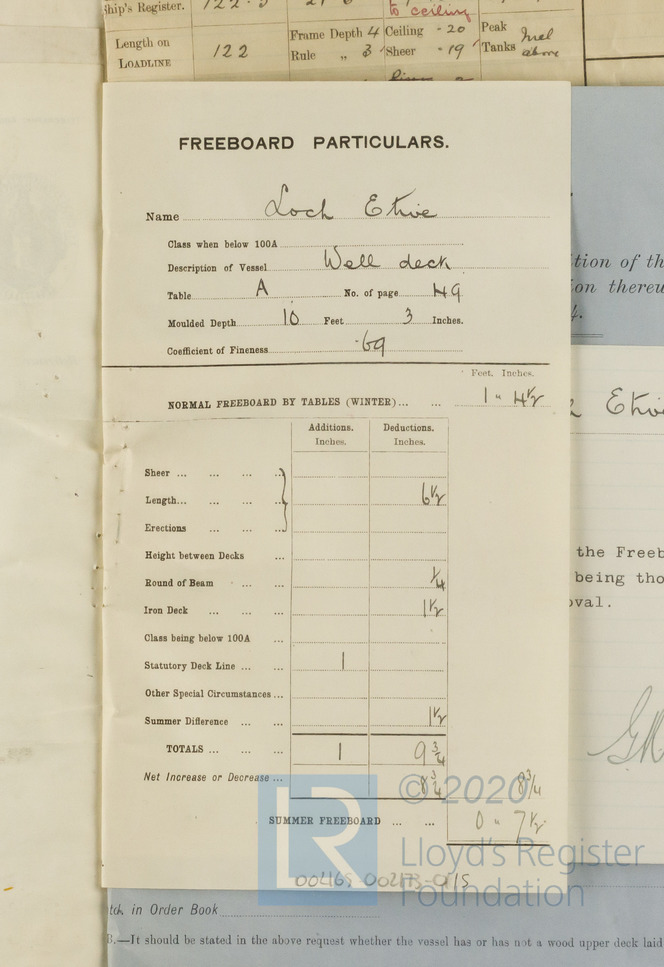 Ship's Register.
to ceiling
Length on LOADLINE 122
Frame Depth 4 Ceiling ·20 Peak
Rule „ 3 Sheer ·19 Tanks above
FREEBOARD PARTICULARS.
Name Loch Etive
Class when below 100A
Description of Vessel Well deck
Table A No. of page 49
Moulded Depth 10 Feet 3 Inches.
Coefficient of Fineness ·69
Feet. Inches.
NORMAL FREEBOARD BY TABLES (WINTER)... ... 1 " 4½
Additions. Deductions.
Inches. Inches.
Sheer ... ... ... ...
Length... ... ... ... 6½
Erections ... ... ...
Height between Decks ...
Round of Beam ... ... ¼
Iron Deck ... ... ... 1½
Class being below 100A ...
Statutory Deck Line ... ... 1
Other Special Circumstances ...
Summer Difference ... ... 1½
TOTALS ... ... ... 1 9¾
Net Increase or Decrease ... 8¾ 8¾
SUMMER FREEBOARD ... ... 0 " 7½
tion of th
on thereu
4.
Etiv
the Freeb
being tho
oval.
© 2020
LR
Lloyd's Register
Foundation
tch in Order Book
B.—It should be stated in the above request whether the vessel has or has not a wood upper deck laid